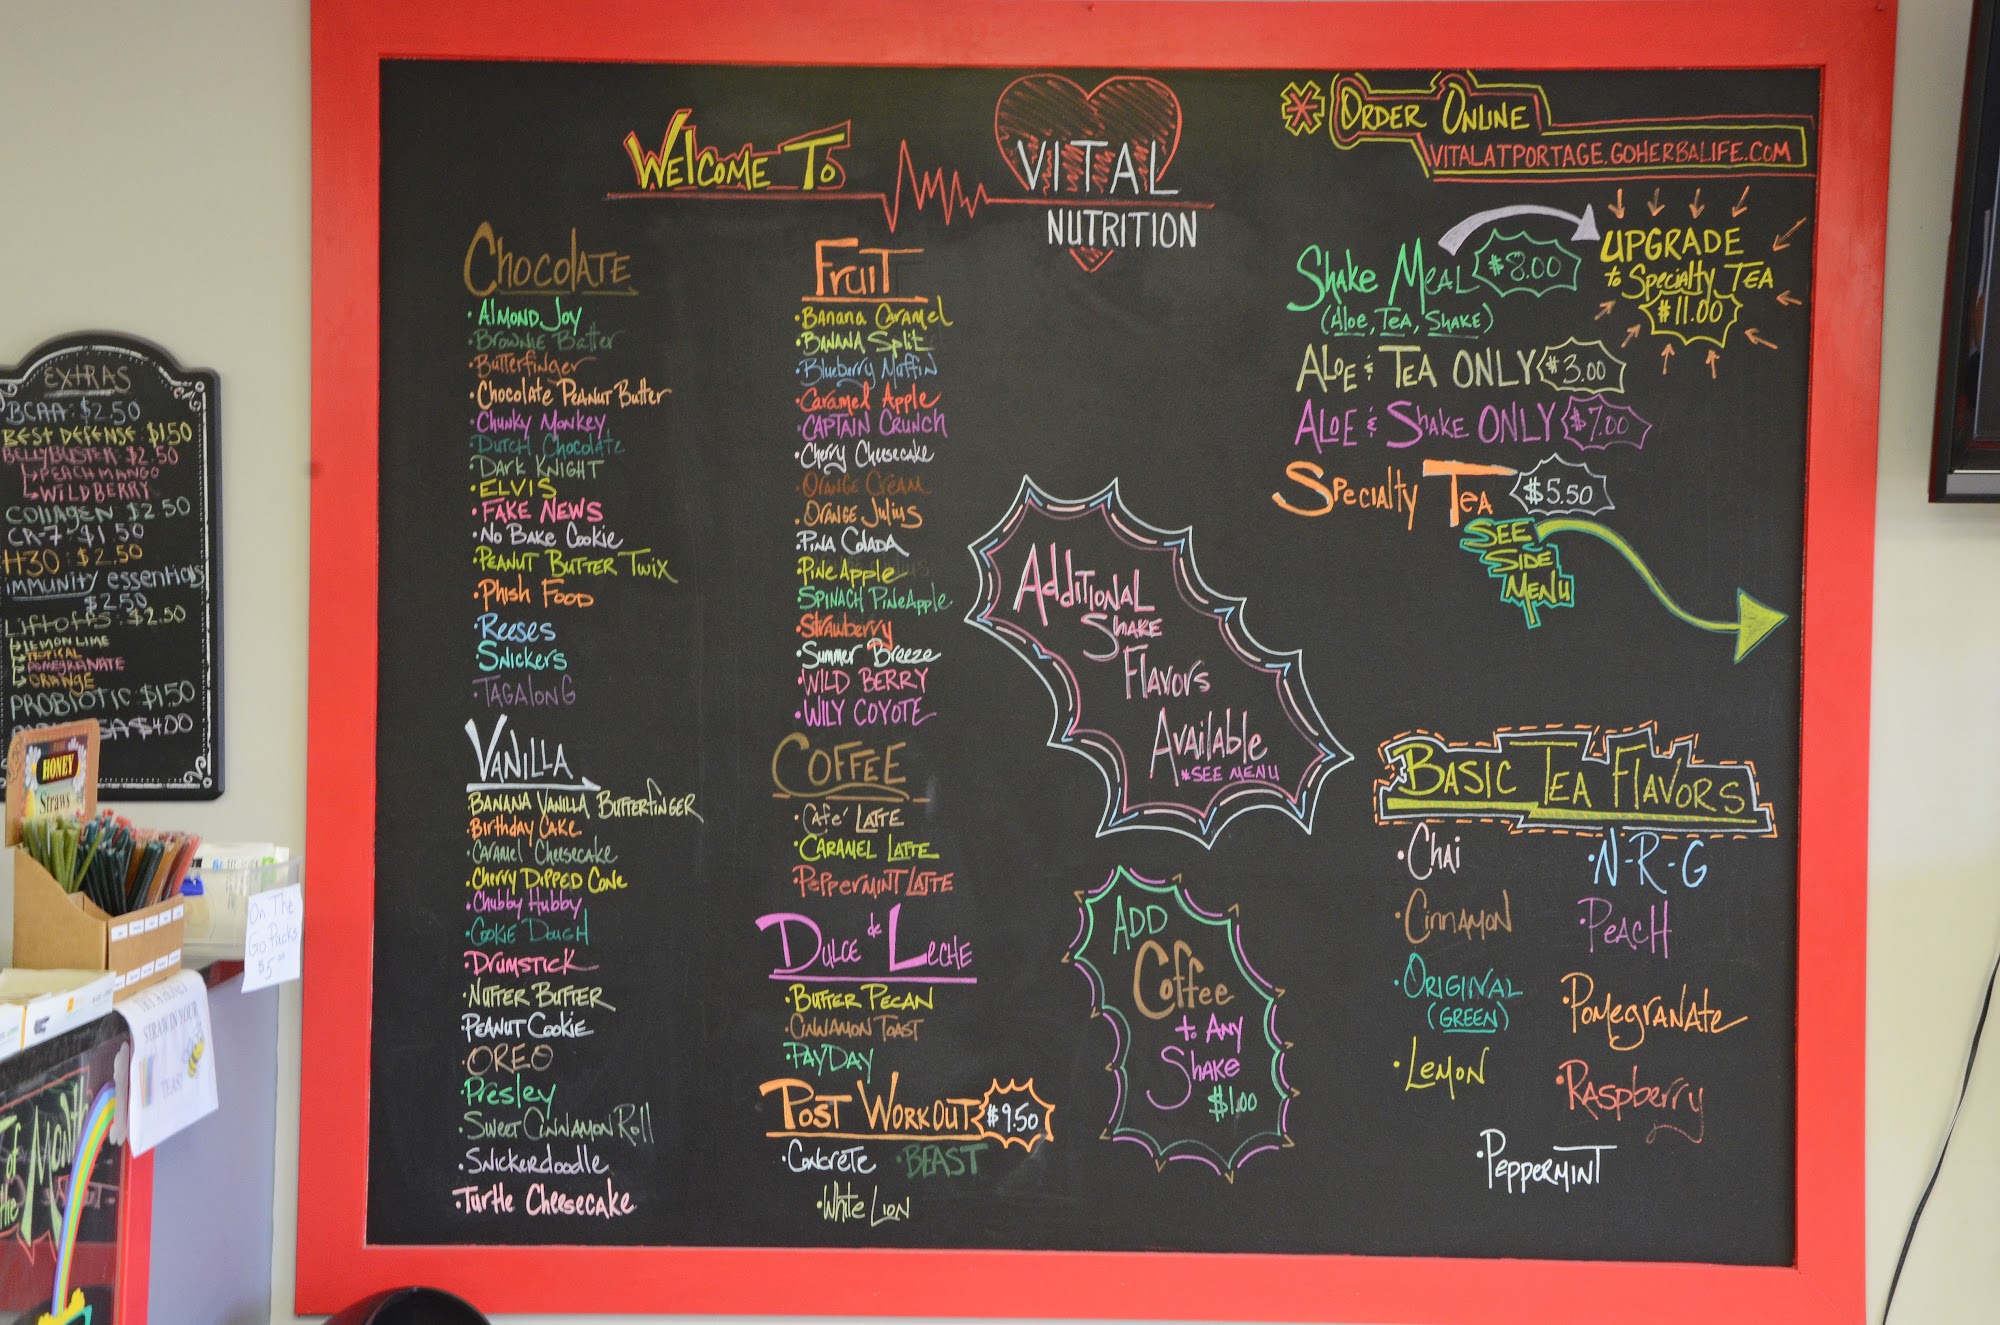 WELCOME TO
VITAL
NUTRITION
* ORDER ONLINE
VITALATPORTAGE.GOHERBALIFE.COM
CHOCOLATE
• ALMOND JOY
• BROWNIE BATTER
• BUTTERFINGER
• CHOCOLATE PEANUT BUTTER
• CHUNKY MONKEY
• DUTCH CHOCOLATE
• DARK KNIGHT
• ELVIS
• FAKE NEWS
• NO BAKE COOKIE
• PEANUT BUTTER TWIX
• PHISH FOOD
• REESES
• SNICKERS
• TAGALONG
VANILLA
• BANANA VANILLA BUTTERFINGER
• BIRTHDAY CAKE
• CARAMEL CHEESECAKE
• CHERRY DIPPED CONE
• CHUBBY HUBBY
• COOKIE DOUGH
• DRUMSTICK
• NUTTER BUTTER
• PEANUT COOKIE
• OREO
• PRESLEY
• SWEET CINNAMON ROLL
• SNICKERDOODLE
• TURTLE CHEESECAKE
FRUIT
• BANANA CARAMEL
• BANANA SPLIT
• BLUEBERRY MUFFIN
• CARAMEL APPLE
• CAPTAIN CRUNCH
• CHERRY CHEESECAKE
• ORANGE CREAM
• ORANGE JULIUS
• PINA COLADA
• PINEAPPLE
• SPINACH PINEAPPLE
• STRAWBERRY
• SUMMER BREEZE
• WILD BERRY
• WILY COYOTE
COFFEE
• CAFE' LATTE
• CARAMEL LATTE
• PEPPERMINT LATTE
DULCE de LECHE
• BUTTER PECAN
• CINNAMON TOAST
• PAYDAY
POST WORKOUT $9.50
• CONCRETE • BEAST
• WHITE LION
ADDITIONAL
SHAKE
FLAVORS
AVAILABLE
*SEE MENU
ADD
COFFEE
to ANY
SHAKE
$1.00
SHAKE MEAL $8.00
(ALOE, TEA, SHAKE)
UPGRADE
to SPECIALTY TEA
$11.00
ALOE & TEA ONLY $3.00
ALOE & SHAKE ONLY $7.00
SPECIALTY TEA $5.50
SEE
SIDE
MENU
BASIC TEA FLAVORS
• CHAI
• CINNAMON
• ORIGINAL
(GREEN)
• LEMON
• N-R-G
• PEACH
• POMEGRANATE
• RASPBERRY
• PEPPERMINT
EXTRAS
BCAA: $2.50
BEST DEFENSE: $1.50
BELLYBUSTER: $2.50
PEACH MANGO
WILDBERRY
COLLAGEN: $2.50
CR-7: $1.50
H30: $2.50
IMMUNITY essentials
$2.50
Liftoffs: $2.50
LEMON LIME
TROPICAL
POMEGRANATE
ORANGE
PROBIOTIC: $1.50
$4.00
HONEY
Straws
ON THE
GO Packs
$5
STRAW IN YOUR
TEAS!
of
the
Month